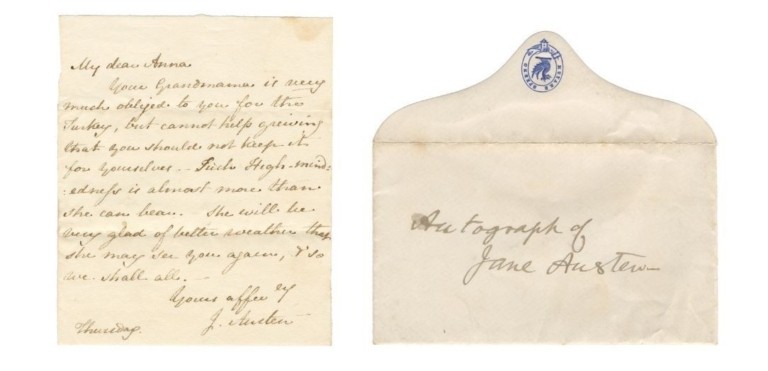 My dear Anna
Your Grandmama is very
much obliged to you for the
Turkey, but cannot help grieving
that you should not keep it
for Yourselves -- Such High-mind:
:edness is almost more than
she can bear. She will be
very glad of better weather that
she may see you again, & so
we shall all. --
Yours affec ly
J. Austen
Thursday.
Autograph of
Jane Austen